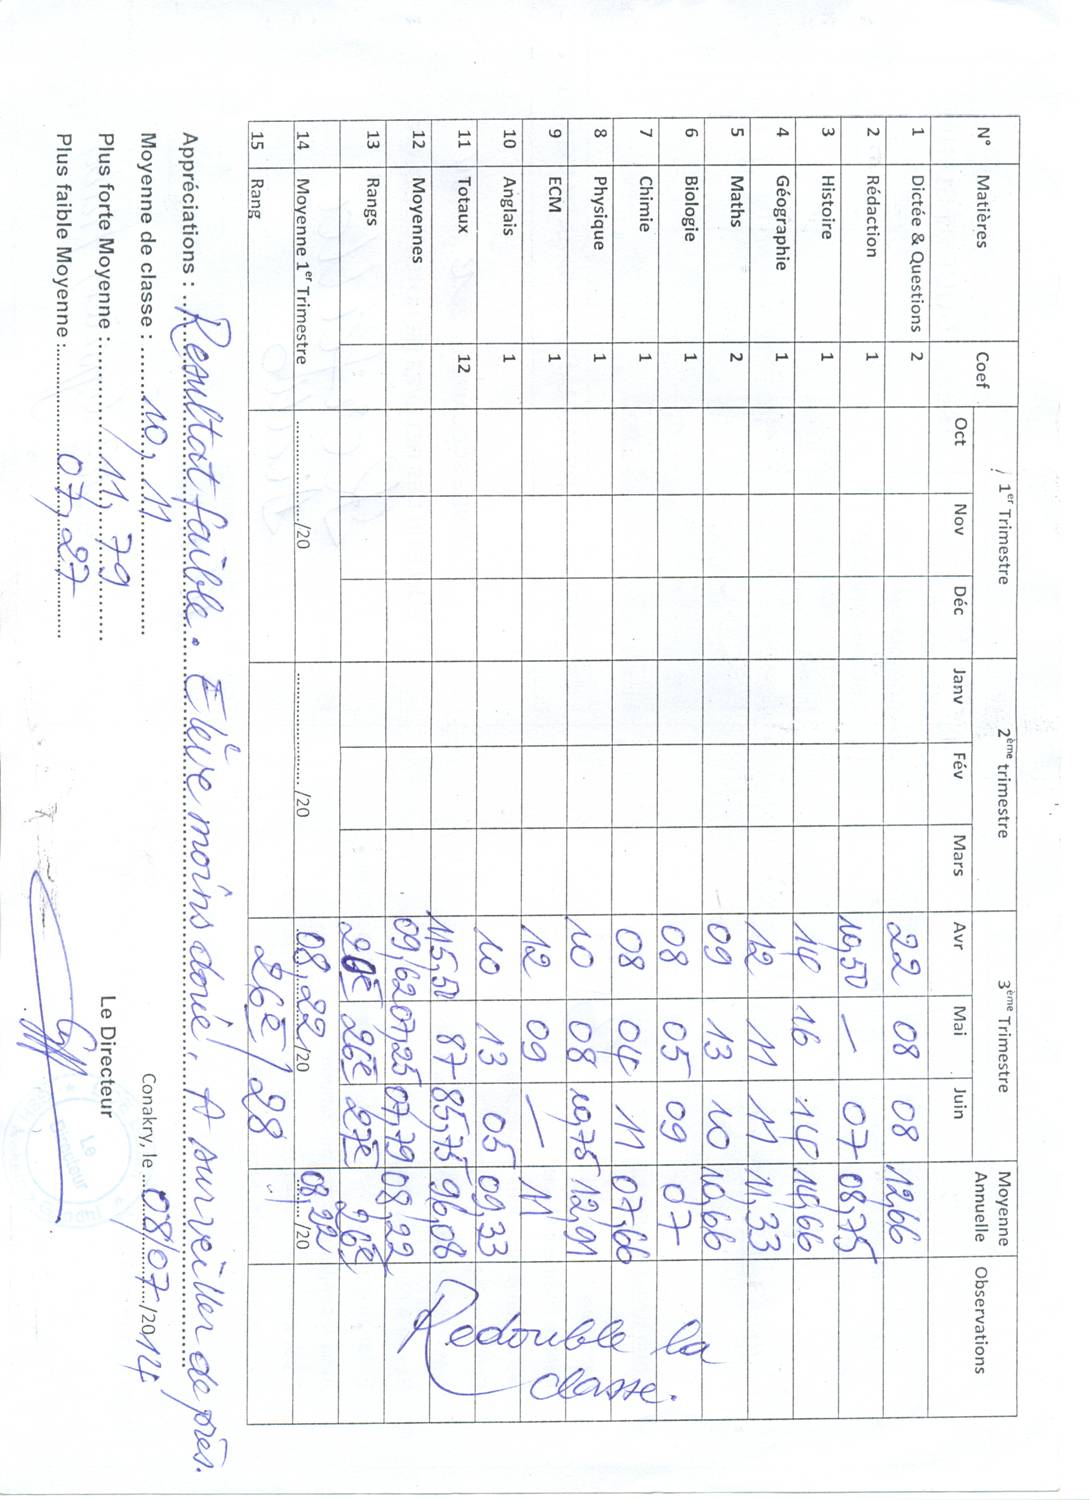 N° Matières Coef 1er Trimestre 2ème trimestre 3ème Trimestre Moyenne Annuelle Observations
Oct Nov Déc Janv Fév Mars Avr Mai Juin
1 Dictée & Questions 2 22 08 08 12,66
2 Rédaction 1 10,50 — 07 08,75
3 Histoire 1 14 16 14 14,66
4 Géographie 1 12 11 11 11,33
5 Maths 2 09 13 10 10,66
6 Biologie 1 08 05 09 07
7 Chimie 1 08 04 11 07,66
8 Physique 1 10 08 10,75 12,91
9 ECM 1 12 09 — 11
10 Anglais 1 10 13 05 09,33
11 Totaux 12 115,50 87 85,75 96,08
12 Moyennes 09,62 07,25 07,79 08,22
13 Rangs 26è 26è 27è 26è
14 Moyenne 1er Trimestre ............/20 ............/20 08,22/20 08,22/20
15 Rang 26è/28 "
Redouble la
classe.
Appréciations : Resultat faible. Elève moins doué, A surveiller de près.
Moyenne de classe : 10,11 Conakry, le 08/07/2014
Plus forte Moyenne : 11,79 Le Directeur
Plus faible Moyenne : 07,27
Le
Directeur